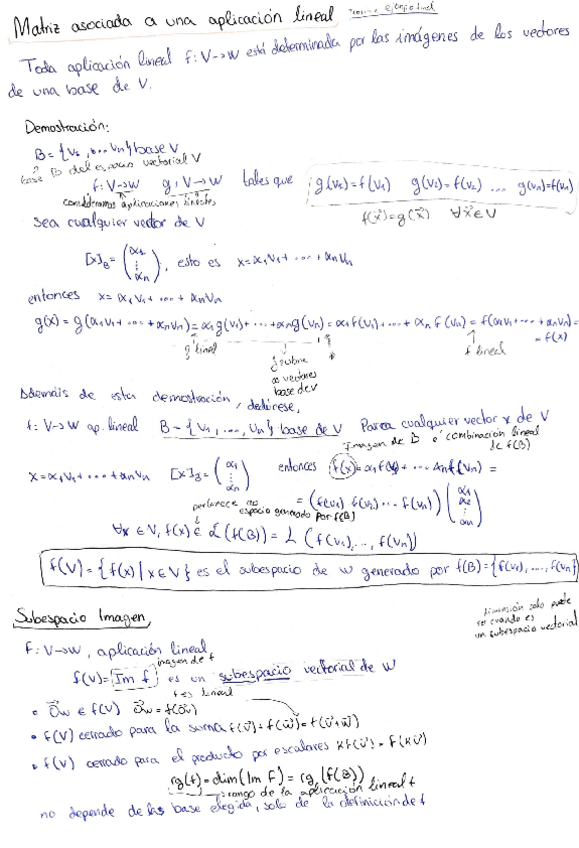 Matriz asociada a una aplicación lineal
Toda aplicación lineal f: V→W está determinada por las imágenes de los vectores
de una base de V.
Demostración:
B = {v₁, ... vₙ} base V
base B del espacio vectorial V
f: V→W g: V→W tales que g(v₁)=f(v₁) g(v₂)=f(v₂) ... g(vₙ)=f(vₙ)
consideramos aplicaciones lineales
f(x⃗)=g(x⃗) ∀x⃗∈V
sea cualquier vector de V
[x]_B = (α₁ ⋮ αₙ), esto es x=α₁v₁+ ... +αₙvₙ
entonces x= α₁v₁+ ... +αₙvₙ
g(x) = g(α₁v₁+ ... +αₙvₙ)=α₁g(v₁)+ ... +αₙg(vₙ)=α₁f(v₁)+ ... +αₙf(vₙ)=f(α₁v₁+ ... +αₙvₙ)=
= f(x)
g lineal
f lineal
vectores
base de V
Además de esta demostración, dedúcese,
f: V→W ap. lineal B={v₁, ..., vₙ} base de V Para cualquier vector x de V
Imagen de B é combinación lineal
de f(B)
x=α₁v₁+ ... +αₙvₙ [x]_B = (α₁ ⋮ αₙ) entonces f(x)=α₁f(v₁)+ ... αₙf(vₙ) =
= (f(v₁) f(v₂) ... f(vₙ)) (α₁ α₂ ⋮ αₙ)
pertenece no
espacio generado por f(B)
∀x∈V, f(x) ∈ L(f(B)) = L(f(v₁), ..., f(vₙ))
f(V)={f(x) | x∈V} es el subespacio de W generado por f(B)={f(v₁), ..., f(vₙ)}
Subespacio Imagen
dimensión solo puede
ser cuando es
un subespacio vectorial
F: V→W, aplicación lineal
imagen de f
f(V)=Im f es un subespacio vectorial de W
f es lineal
• 0⃗_W ∈ f(V) 0⃗_W = f(0⃗_V)
• f(V) cerrado para la suma f(v⃗)+f(w⃗)=f(v⃗+w⃗)
• f(V) cerrado para el producto por escalares Kf(v⃗)=f(Kv⃗)
rg(f)=dim(Im F)=rg(f(B))
rango de la aplicación lineal f
no depende de las base elegida, solo de la definición de f